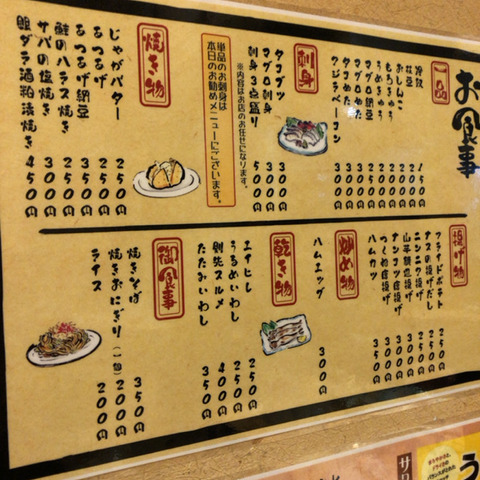 お食事
一品
冷奴
枝豆
おしんこ
もろきゅう
うめきゅう
マグロ納豆
マグロぬた
タコぬた
クジラベーコン
200円
250円
250円
300円
300円
300円
300円
刺身
タコブツ
マグロ刺身
刺身3点盛り
300円
300円
500円
※内容はお店のお任せになります。
単品のお刺身は
本日のお勧めメニューにございます。
焼き物
じゃがバター
あつあげ
あつあげ納豆
鮭のハラス焼き
サバの塩焼き
銀ダラ酒粕漬焼き
250円
250円
350円
250円
300円
450円
揚げ物
フライドポテト
ナスの揚げだし
ニンニク揚げ
山芋磯辺揚げ
ナンコツ唐揚げ
つくね唐揚げ
ハムカツ
250円
250円
250円
300円
300円
300円
350円
炒め物
ハムエッグ
300円
乾き物
エイヒレ
うるめいわし
剣先スルメ
たたみいわし
250円
250円
400円
350円
御食事
焼きそば
焼きおにぎり(一個)
ライス
350円
200円
200円
サワ
う